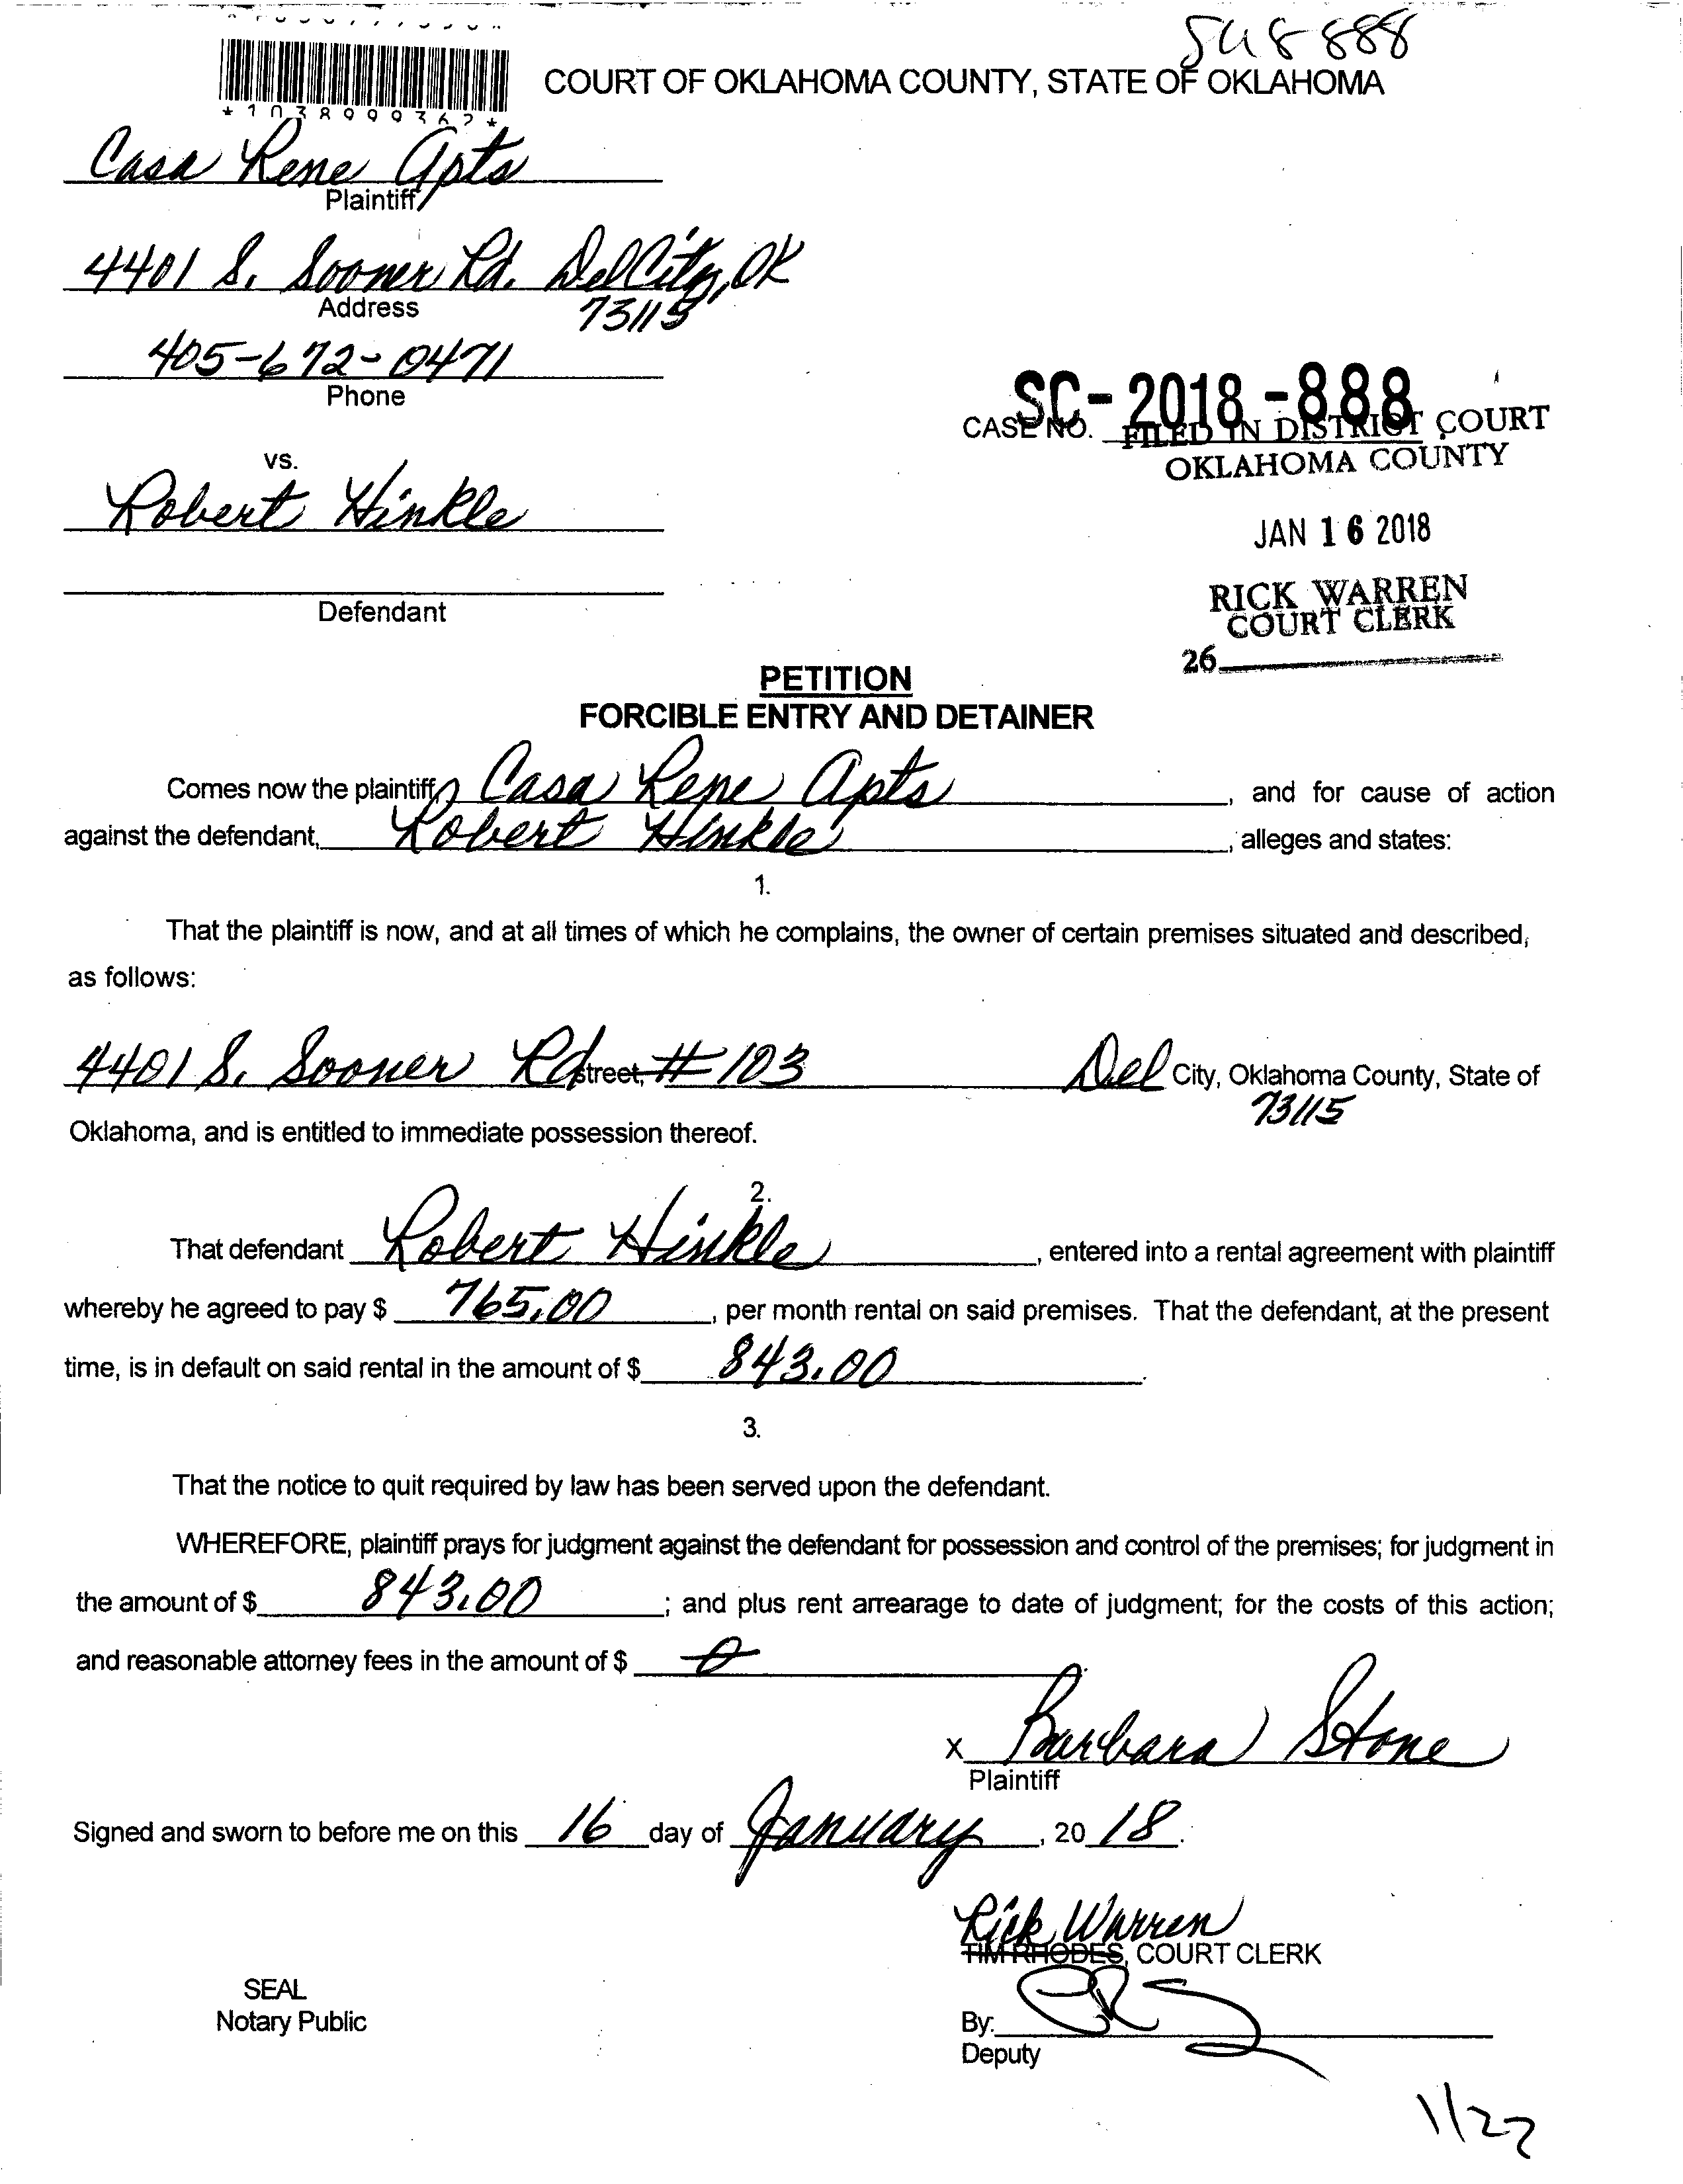 888
COURT OF OKLAHOMA COUNTY, STATE OF OKLAHOMA
*1038999362*
Casa Rene Apts
Plaintiff
4401 S. Sooner Rd. Del City, OK
Address 73115
405-672-0471
Phone
SC-2018-888
CASE NO.
FILED IN DISTRICT COURT
OKLAHOMA COUNTY
vs.
Robert Hinkle
JAN 16 2018
Defendant
RICK WARREN
COURT CLERK
26
PETITION
FORCIBLE ENTRY AND DETAINER
Comes now the plaintiff, Casa Rene Apts, and for cause of action
against the defendant, Robert Hinkle, alleges and states:
1.
That the plaintiff is now, and at all times of which he complains, the owner of certain premises situated and described,
as follows:
4401 S. Sooner Rd street, #103 Del City, Oklahoma County, State of
73115
Oklahoma, and is entitled to immediate possession thereof.
2.
That defendant Robert Hinkle, entered into a rental agreement with plaintiff
whereby he agreed to pay $ 765.00, per month rental on said premises. That the defendant, at the present
time, is in default on said rental in the amount of $ 843.00.
3.
That the notice to quit required by law has been served upon the defendant.
WHEREFORE, plaintiff prays for judgment against the defendant for possession and control of the premises; for judgment in
the amount of $ 843.00; and plus rent arrearage to date of judgment; for the costs of this action;
and reasonable attorney fees in the amount of $ 0
x Barbara Stone
Plaintiff
Signed and sworn to before me on this 16 day of January, 2018.
Rick Warren
TIM RHODES, COURT CLERK
SEAL
Notary Public
By:
Deputy
1/22